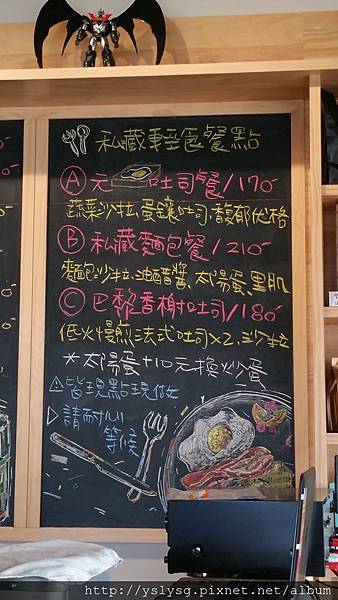 私藏輕食餐點
Ⓐ 元 吐司餐/170
蔬菜沙拉,蛋鑲吐司,馥郁优格
Ⓑ 私藏麵包餐/210
麵包,沙拉,油醋醬、太陽蛋,里肌
Ⓒ 巴黎香榭吐司/180
低火慢煎法式吐司×2,沙拉
*太陽蛋+10元換炒蛋
△皆現點現做
▷請耐心
等候
http://yslysg.pixnet.net/album